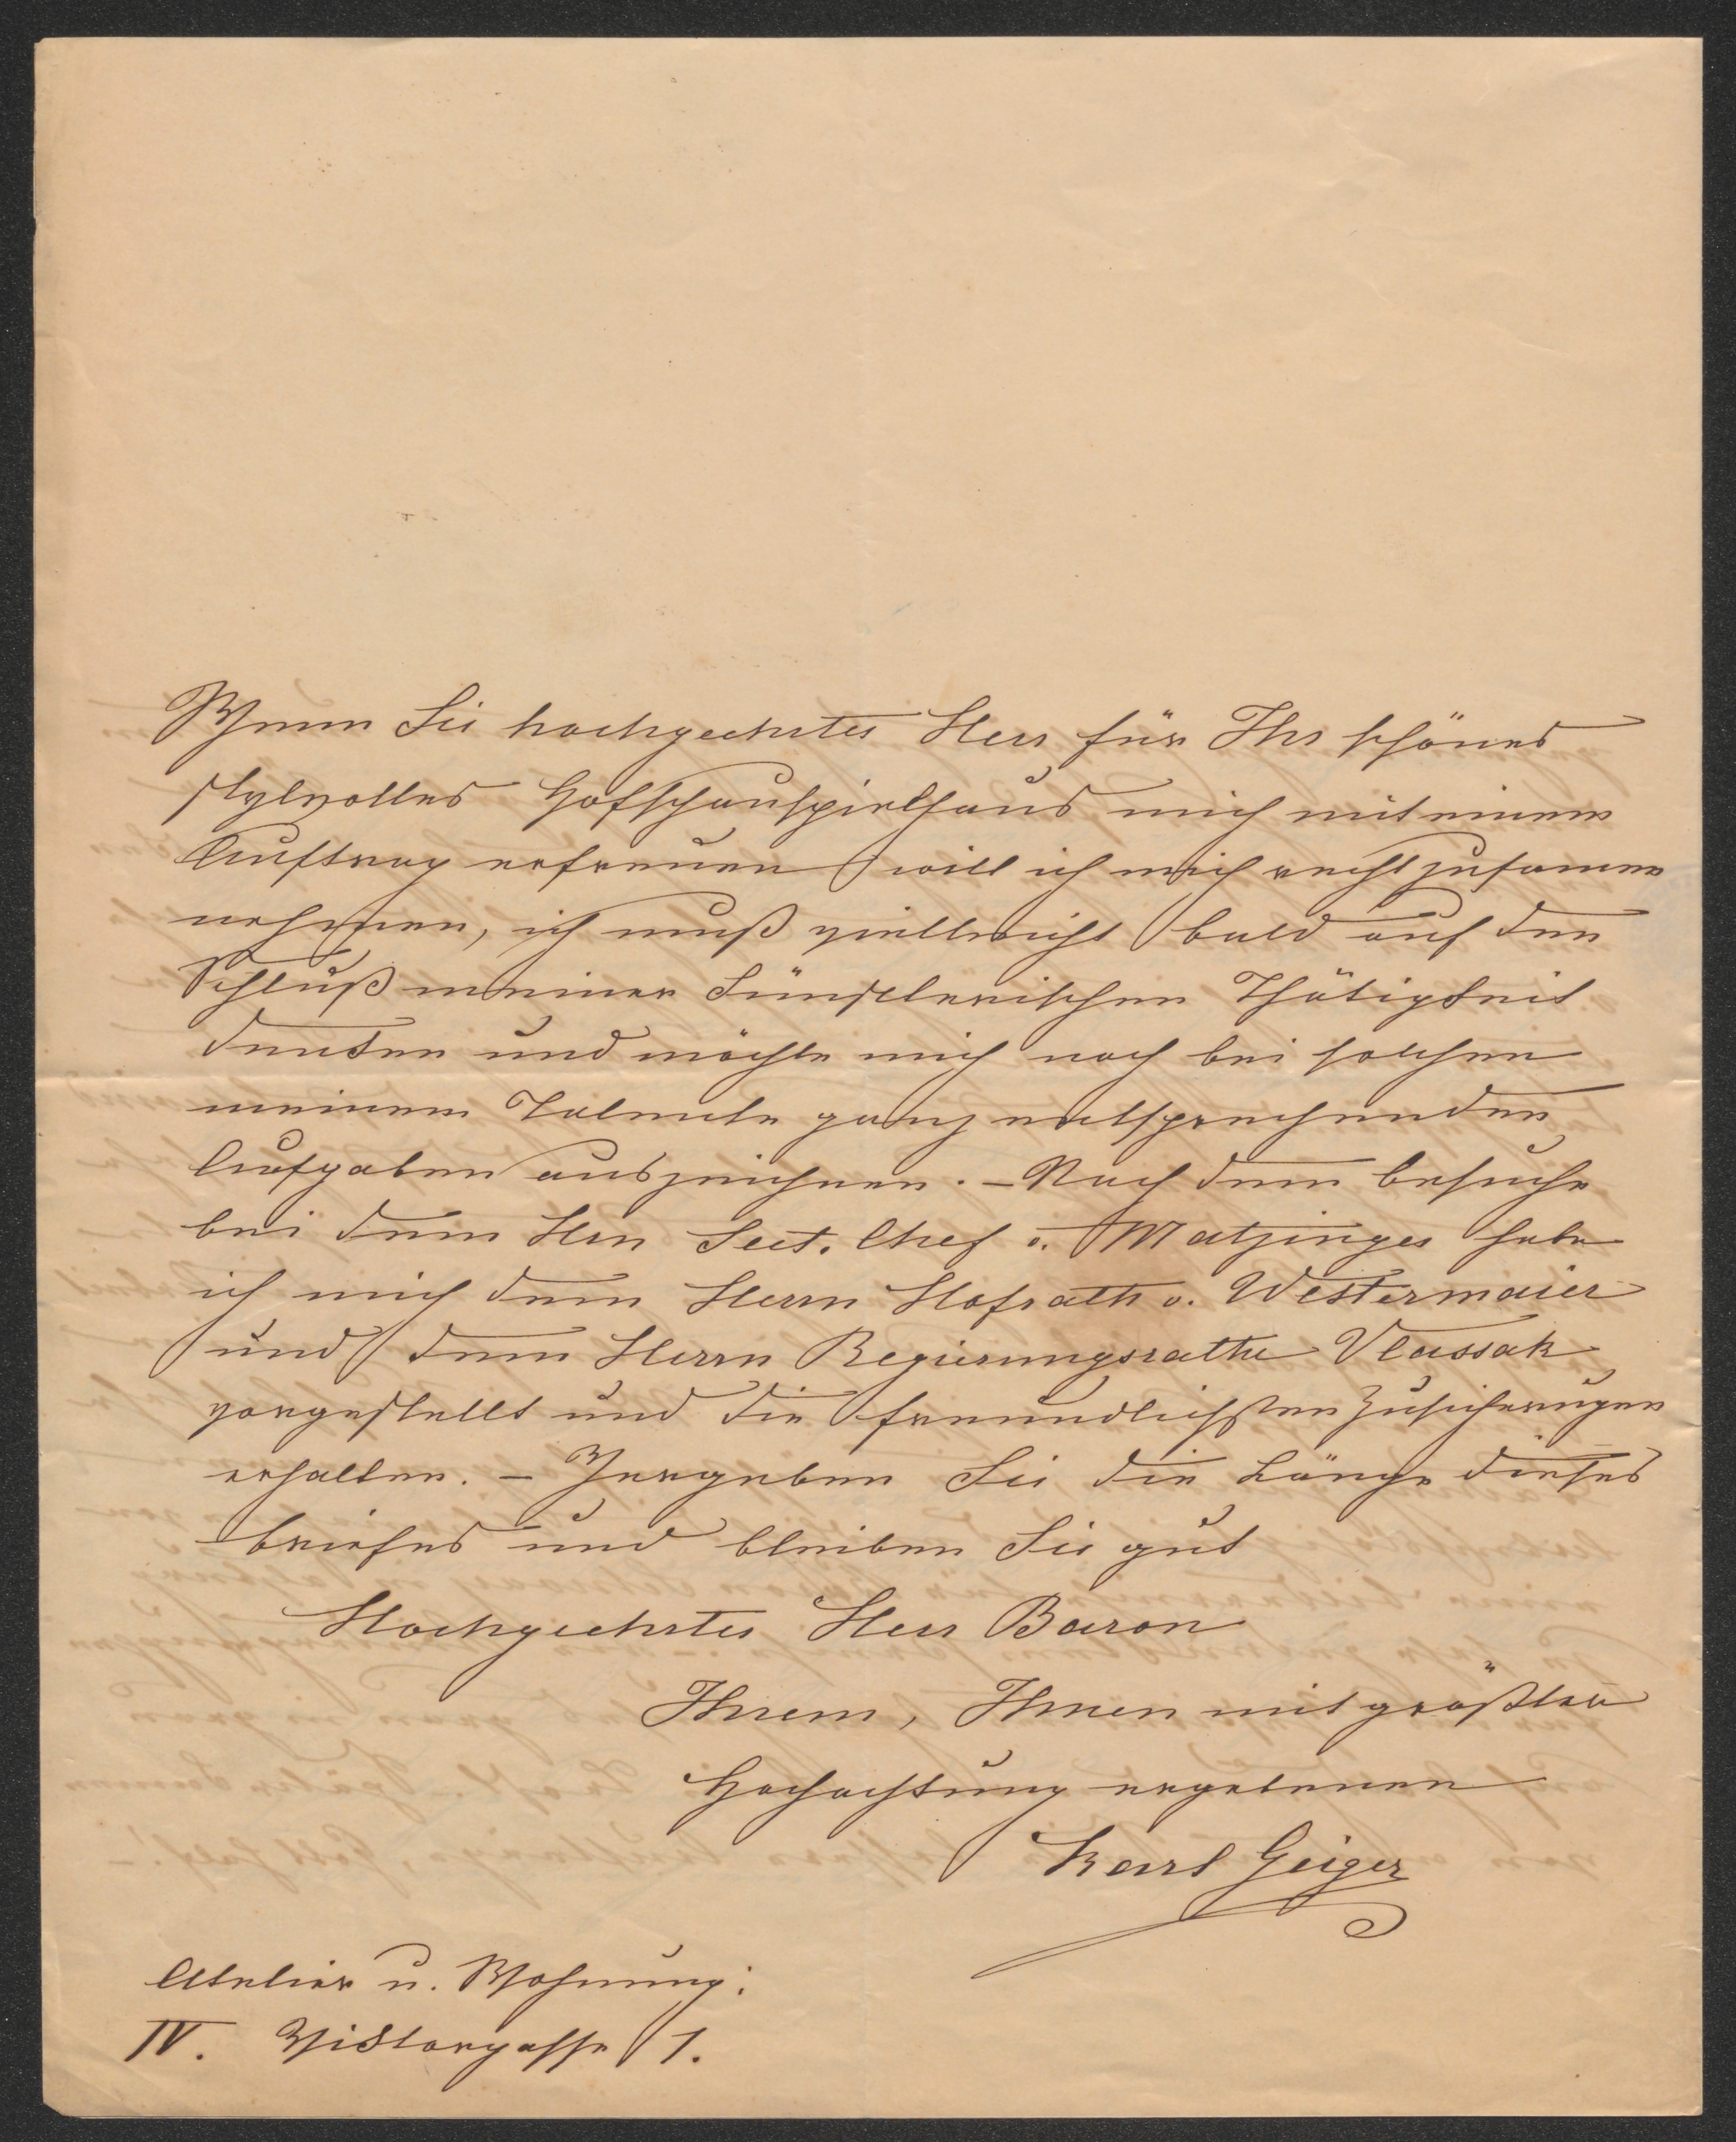 Wenn Sie hochgeehrter Herr für Ihr schönes
stylvolles Hofschauspielhaus mich mit einem
Auftrag erfreuen will ich mich recht zusamen
nehmen, ich muß vielleicht bald auf den
Schluß meiner künstlerischen Thätigkeit
denken und möchte mich noch bei solchen
meinem Talente ganz entsprechenden
Aufgaben auszeichnen. – Nach dem besuche
bei dem Hrn Sect. Chef v. Matzinger habe
ich mich dem Herrn Hofrath v. Westermaier
und dem Herrn Regierungsrathe Vlassak
vorgestellt und die freundlichsten Zusicherungen
erhalten. – Vergeben Sie die Länge dieses
briefes und bleiben Sie gut
Hochgeehrter Herr Baron
Ihrem, Ihnen mit größter
Hochachtung ergebenen
Karl Geiger
Atelier u. Wohnung:
IV. Viktorgasse 1.